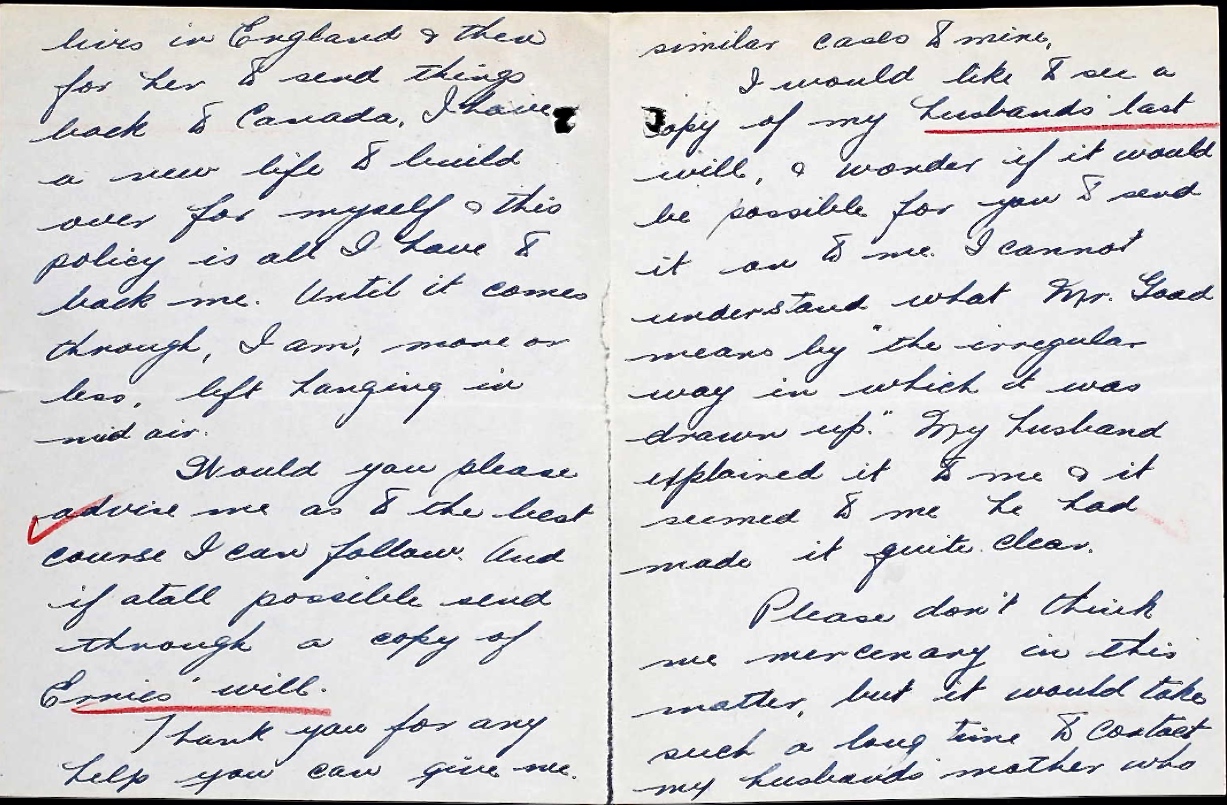 similar cases to mine.
I would like to see a
copy of my husbands' last
will, & wonder if it would
be possible for you to send
it on to me. I cannot
understand what Mr. Good
means by "the irregular
way in which it was
drawn up." My husband
explained it to me & it
seemed to me he had
made it quite clear.
Please don't think
me mercenary in this
matter, but it would take
such a long time to contact
my husbands' mother who
lives in England & then
for her to send things
back to Canada, I have
a new life to build
over for myself & this
policy is all I have to
back me. Until it comes
through, I am, more or
less, left hanging in
mid air.
Would you please
advise me as to the best
course I can follow. And
if atall possible send
through a copy of
Ernies' will.
Thank you for any
help you can give me.